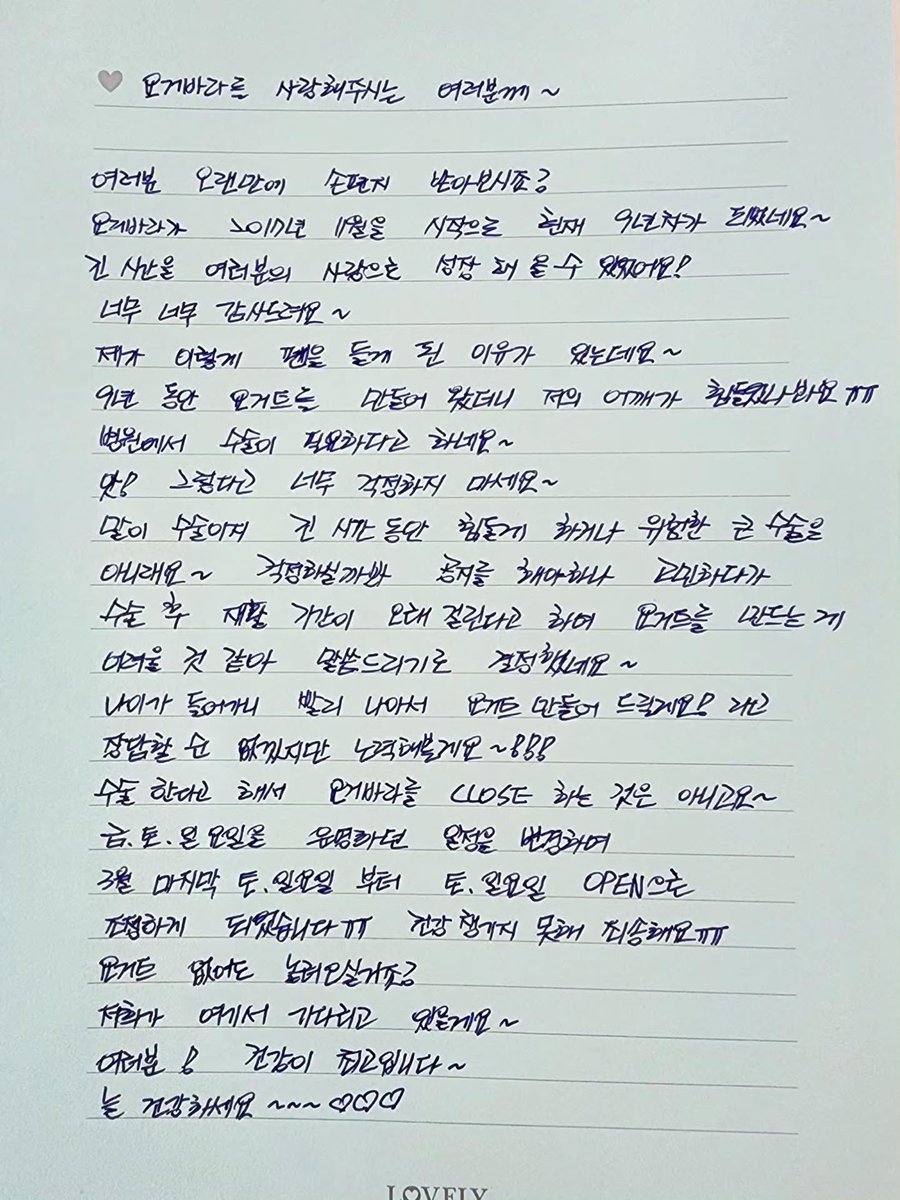 요거바라를 사랑해주시는 여러분께~
여러분 오랜만에 손편지 받아보시죠?
요거바라가 2017년 11월을 시작으로 현재 9년차가 되었네요~
긴 시간을 여러분의 사랑으로 성장해 올 수 있었어요!
너무 너무 감사드려요~
제가 이렇게 펜을 들게 된 이유가 있는데요~
9년 동안 요거트를 만들어 왔더니 저의 어깨가 힘들었나봐요ㅠㅠ
병원에서 수술이 필요하다고 하네요~
앗! 그렇다고 너무 걱정하지 마세요~
말이 수술이지 긴 시간 동안 힘들게 하거나 위험한 큰 수술은
아니래요~ 걱정하실까봐 공지를 해야하나 고민하다가
수술 후 재활 기간이 오래 걸린다고 하여 요거트를 만드는 게
어려울 것 같아 말씀드리기로 결정했네요~
나이가 들어가니 빨리 나아서 요거트 만들어 드릴게요! 라고
장담할 순 없겠지만 노력해볼게요~!!!
수술 한다고 해서 요거바라를 CLOSE 하는 것은 아니고요~
금.토.일요일을 운영하던 일정을 변경하여
3월 마지막 토.일요일 부터 토.일요일 OPEN으로
조정하게 되었습니다ㅠㅠ 건강 챙기지 못해 죄송해요ㅠㅠ
요거트 없어도 놀러오실거죠?
저희가 여기서 기다리고 있을게요~
여러분! 건강이 최고입니다~
늘 건강하세요~~~♡♡♡
LOVELY